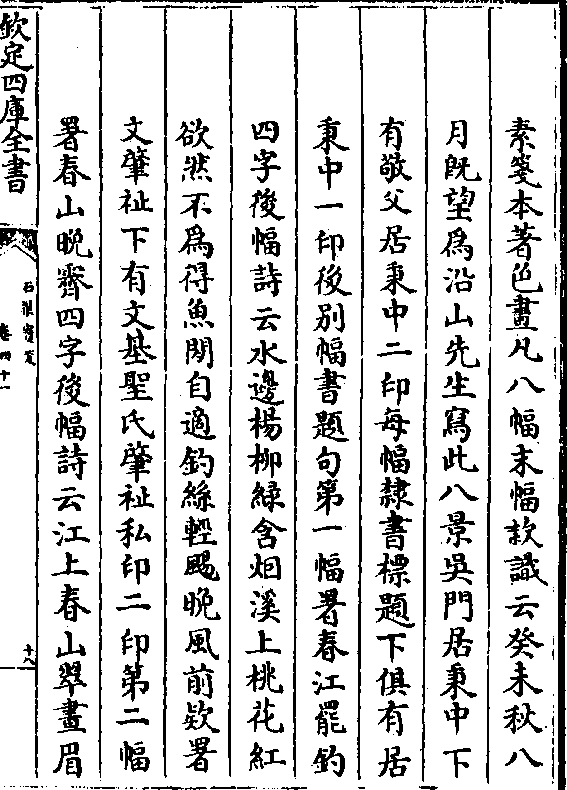 素箋本著色畫凡八幅末幅款識云癸未秋八
月既望為沿山先生寫此八景吳門居秉中下
有敬父居秉中二印每幅隸書標題下俱有居
秉中一印後別幅書題句第一幅署春江罷釣
四字後幅詩云水邊楊柳緑含烟溪上桃花紅
欲然不為得魚閒自適釣絲輕颺晚風前欵署
文肇祉下有文基聖氏肇祉私印二印第二幅
署春山晚霽四字後幅詩云江上春山翠畫眉
欽定四庫全書
石渠寳笈
卷四十一
十八